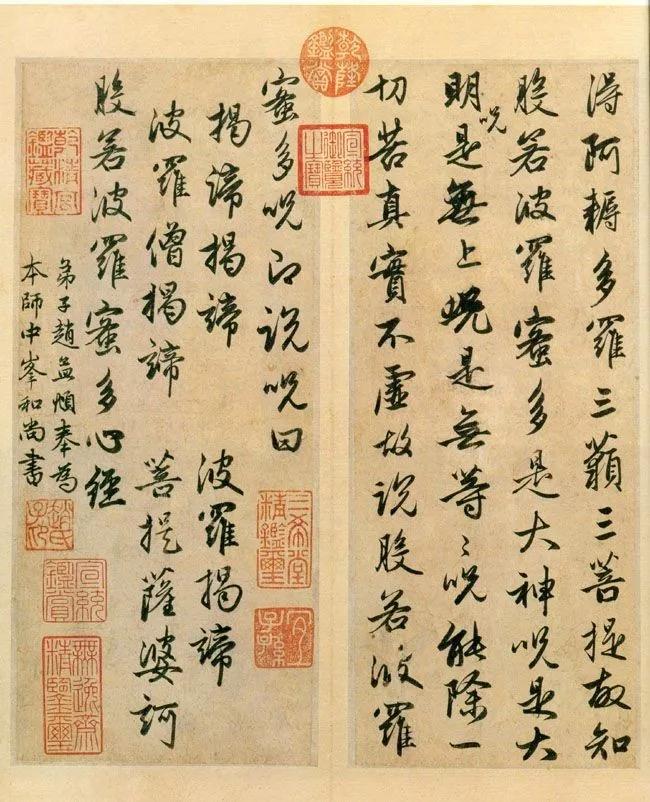 得阿耨多羅三藐三菩提故知
般若波羅蜜多是大神呪是大
明呪是無上呪是無等〻呪能除一
切苦真實不虛故說般若波羅
乾隆鑑賞
宣統御覽之寶
蜜多呪即說呪曰
三希堂精鑑璽
宜子孫
揭諦揭諦 波羅揭諦
波羅僧揭諦 菩提薩婆訶
般若波羅蜜多心經
弟子趙孟頫奉為
本師中峯和尚書
乾清宮鑑藏寶
趙氏子昂
宣統鑑賞
無逸齋精鑒璽